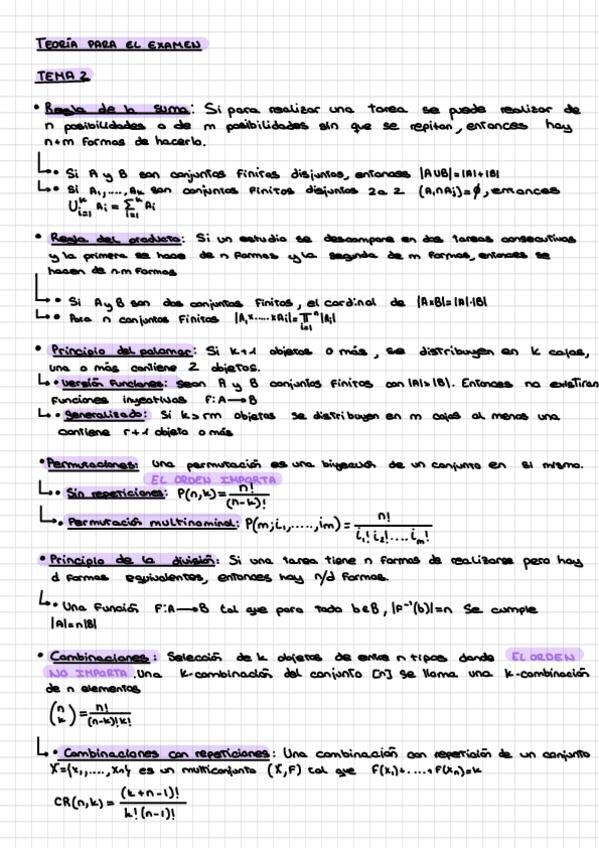 TEORÍA PARA EL EXAMEN
TEMA 2
• Regla de la suma: Si para realizar una tarea se puede realizar de
n posibilidades o de m posibilidades sin que se repitan, entonces hay
n+m formas de hacerlo.
• Si A y B son conjuntos finitos disjuntos, entonces |A∪B|=|A|+|B|
• Si A₁,...., Aₖ son conjuntos finitos disjuntos 2 a 2 (Aᵢ∩Aⱼ)=∅, entonces
⋃ᵢ₌₁ᵏ Aᵢ = ∑ᵢ₌₁ᵏ Aᵢ
• Regla del producto: Si un estudio se descompone en dos tareas consecutivas
y la primera se hace de n formas y la segunda de m formas, entonces se
hacen de n·m formas
• Si A y B son dos conjuntos finitos, el cardinal de |A×B|=|A|·|B|
• Para n conjuntos finitos |A₁×.....×Aᵢ|=∏ᵢ₌₁ⁿ|Aᵢ|
• Principio del palomar: Si k+1 objetos o más, se distribuyen en k cajas,
una o más contiene 2 objetos.
• Versión funciones: sean A y B conjuntos finitos con |A|>|B|. Entonces no existirán
funciones inyectivas f: A→B
• Generalizado: Si k>rm objetos se distribuyen en m cajas al menos una
contiene r+1 objeto o más
• Permutaciones: una permutación es una biyección de un conjunto en si mismo.
EL ORDEN IMPORTA
• Sin repeticiones: P(n,k)= n!/(n-k)!
• Permutación multinominal: P(m;i₁,.....,im) = n!/(i₁! i₂!.... iₘ!)
• Principio de la división: Si una tarea tiene n formas de realizarse pero hay
d formas equivalentes, entonces hay n/d formas.
• Una función F:A→B tal que para todo b∈B, |F⁻¹(b)|=n Se cumple
|A|=n|B|
• Combinaciones: Selección de k objetos de entre n tipos donde EL ORDEN
NO IMPORTA. Una k-combinación del conjunto [n] se llama una k-combinación
de n elementos
(n k) = n!/((n-k)!k!)
• Combinaciones con repeticiones: Una combinación con repetición de un conjunto
X={x₁,....,xn} es un multiconjunto (X,F) tal que F(x₁)+.....+F(xn)=k
CR(n,k) = (k+n-1)!/(k!(n-1)!)